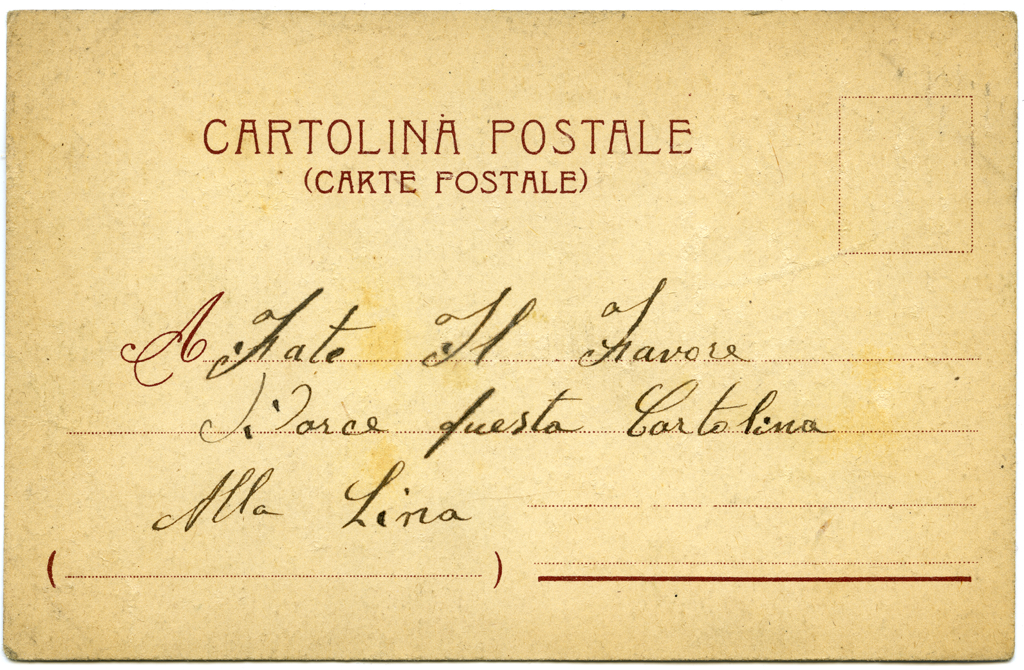 CARTOLINA POSTALE
(CARTE POSTALE)
A Fate Il Favore
questa Cartolina
Alla Lina
( )